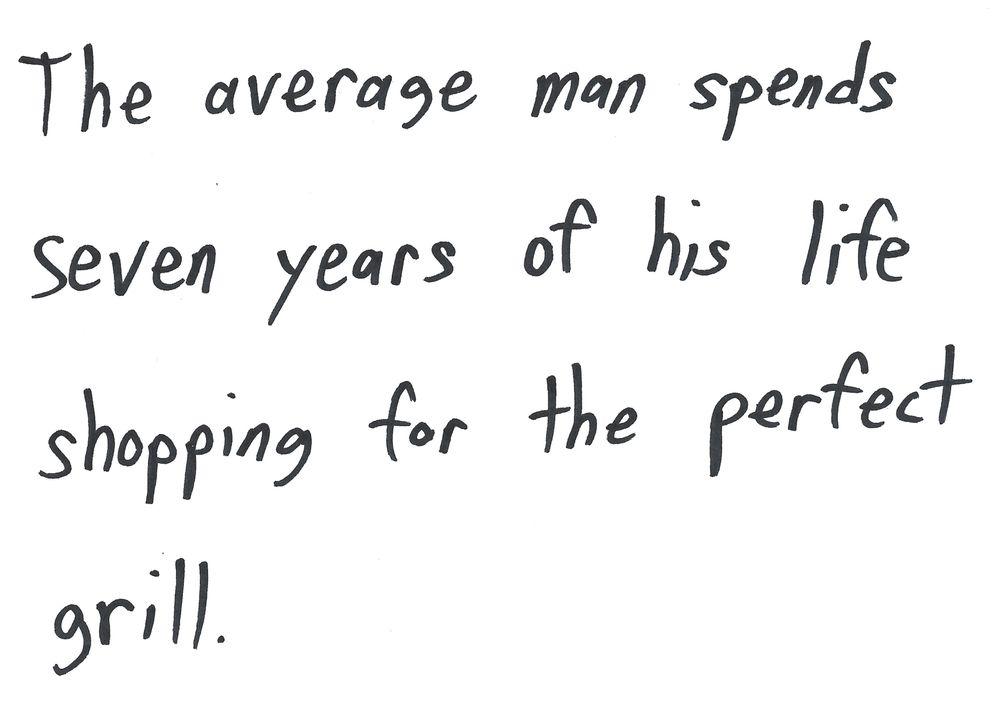 The average man spends
seven years of his life
shopping for the perfect
grill.